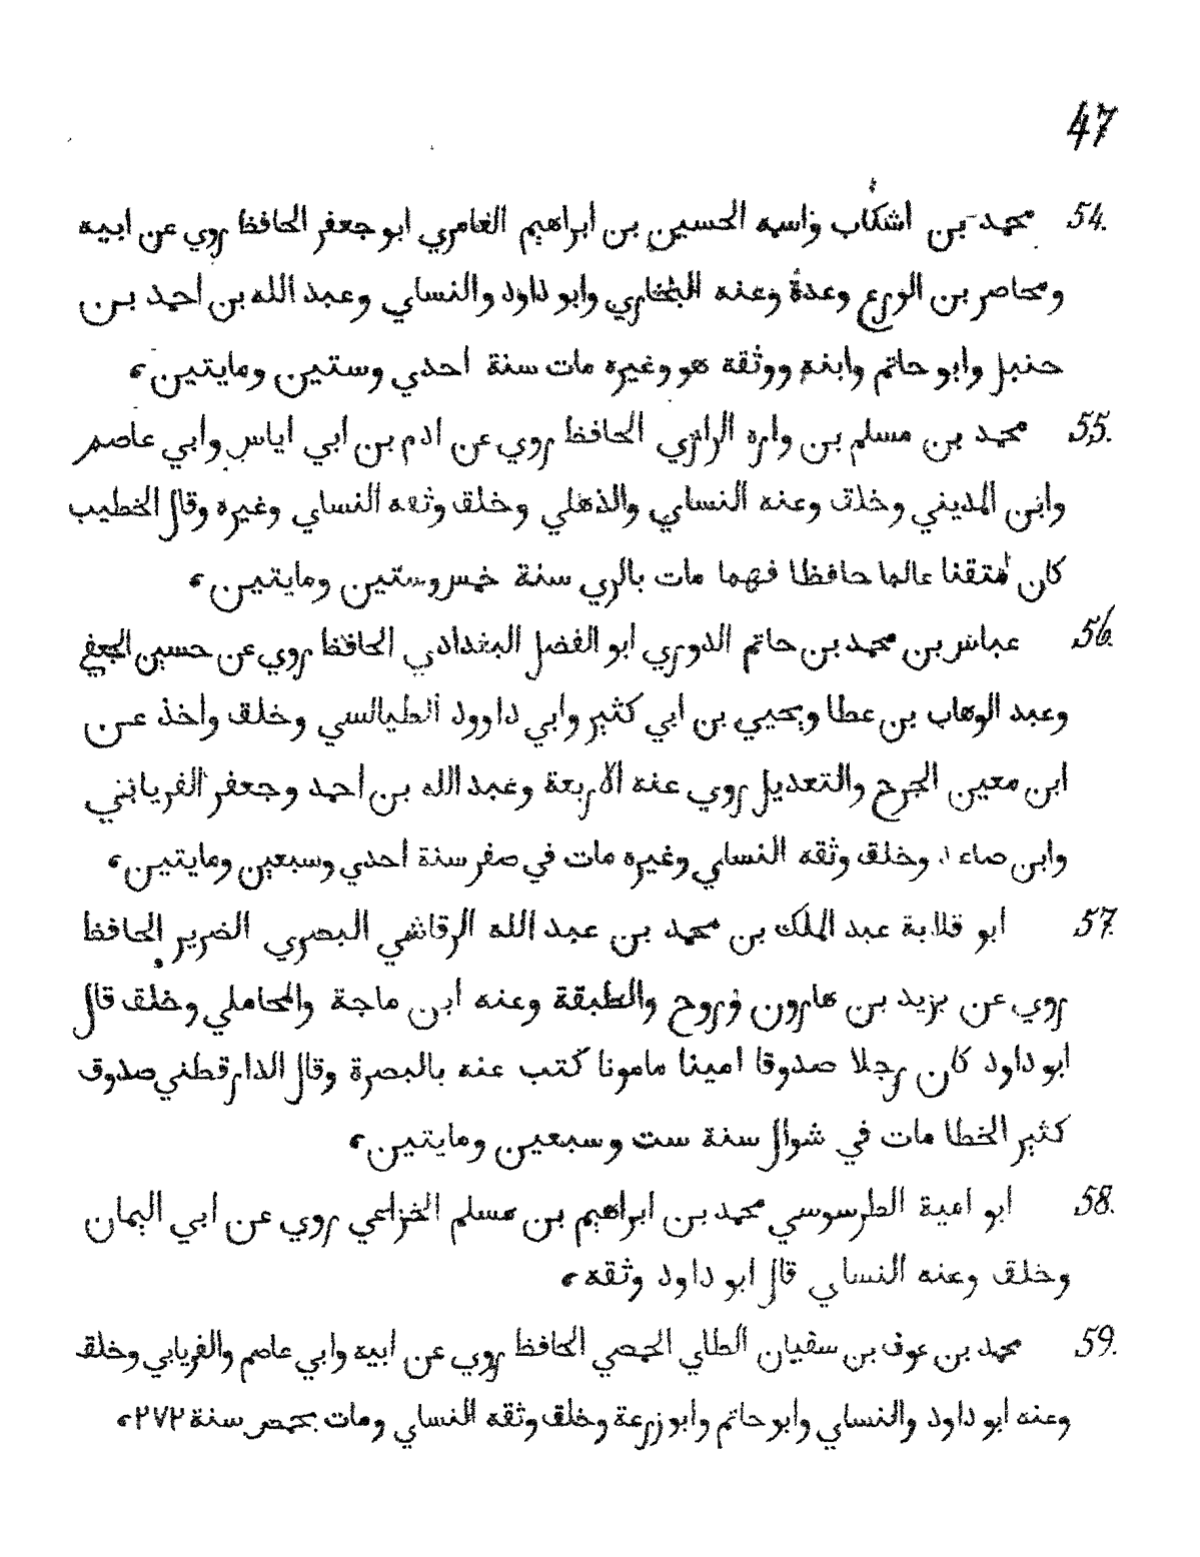 47
54. محمد بن اشكاب واسمه الحسين بن ابراهيم الغامري ابو جعفر الحافظ روي عن ابيه
ومحاصر بن الورع وعدة وعنه البخاري وابو داود والنساي وعبد الله بن احمد بن
حنبل وابو حاتم وابنه ووثقه هو وغيره مات سنة احدي وستين ومايتين ،
55. محمد بن مسلم بن واره الرازي الحافظ روي عن ادم بن ابي اياس وابي عاصم
وابن المديني وخلق وعنه النساي والذهلي وخلق وثقه النساي وغيره وقال الخطيب
كان متقنا عالما حافظا فهما مات بالري سنة خمس وستين ومايتين ،
56. عباس بن محمد بن حاتم الدوري ابو الفضل البغدادي الحافظ روي عن حسين الجعفي
وعبد الوهاب بن عطا ويحيي بن ابي كثير وابي داوود الطيالسي وخلق واخذ عن
ابن معين الجرح والتعديل روي عنه الاربعة وعبد الله بن احمد وجعفر الفريابني
وابن صاعد وخلق وثقه النساي وغيره مات في صفر سنة احدي وسبعين ومايتين ،
57. ابو قلابة عبد الملك بن محمد بن عبد الله الرقاشي البصري الضرير الحافظ
روي عن يزيد بن هارون وروح والطبقة وعنه ابن ماجة والمحاملي وخلق قال
ابو داود كان رجلا صدوقا امينا مامونا كتب عنه بالبصرة وقال الدارقطني صدوق
كثير الخطا مات في شوال سنة ست وسبعين ومايتين ،
58. ابو امية الطرسوسي محمد بن ابراهيم بن مسلم الخزاعي روي عن ابي اليمان
وخلق وعنه النساي قال ابو داود وثقه ،
59. محمد بن عوف بن سفيان الطاي الحمصي الحافظ روي عن ابيه وابي عاصم والفريابي وخلق
وعنه ابو داود والنساي وابو حاتم وابو زرعة وخلق وثقه النساي ومات بحمص سنة ٢٧٢ ،